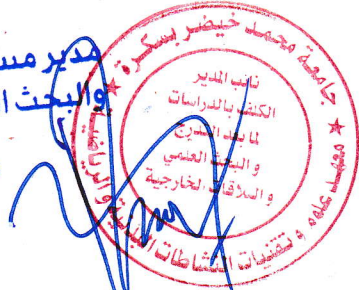 مدير مس
والبحث ا
جامعة محمد خيضر بسكرة
معهد علوم و تقنيات النشاطات البدنية و الرياضية
نائب المدير
المكلف بالدراسات
لما بعد التدرج
و البحث العلمي
و العلاقات الخارجية